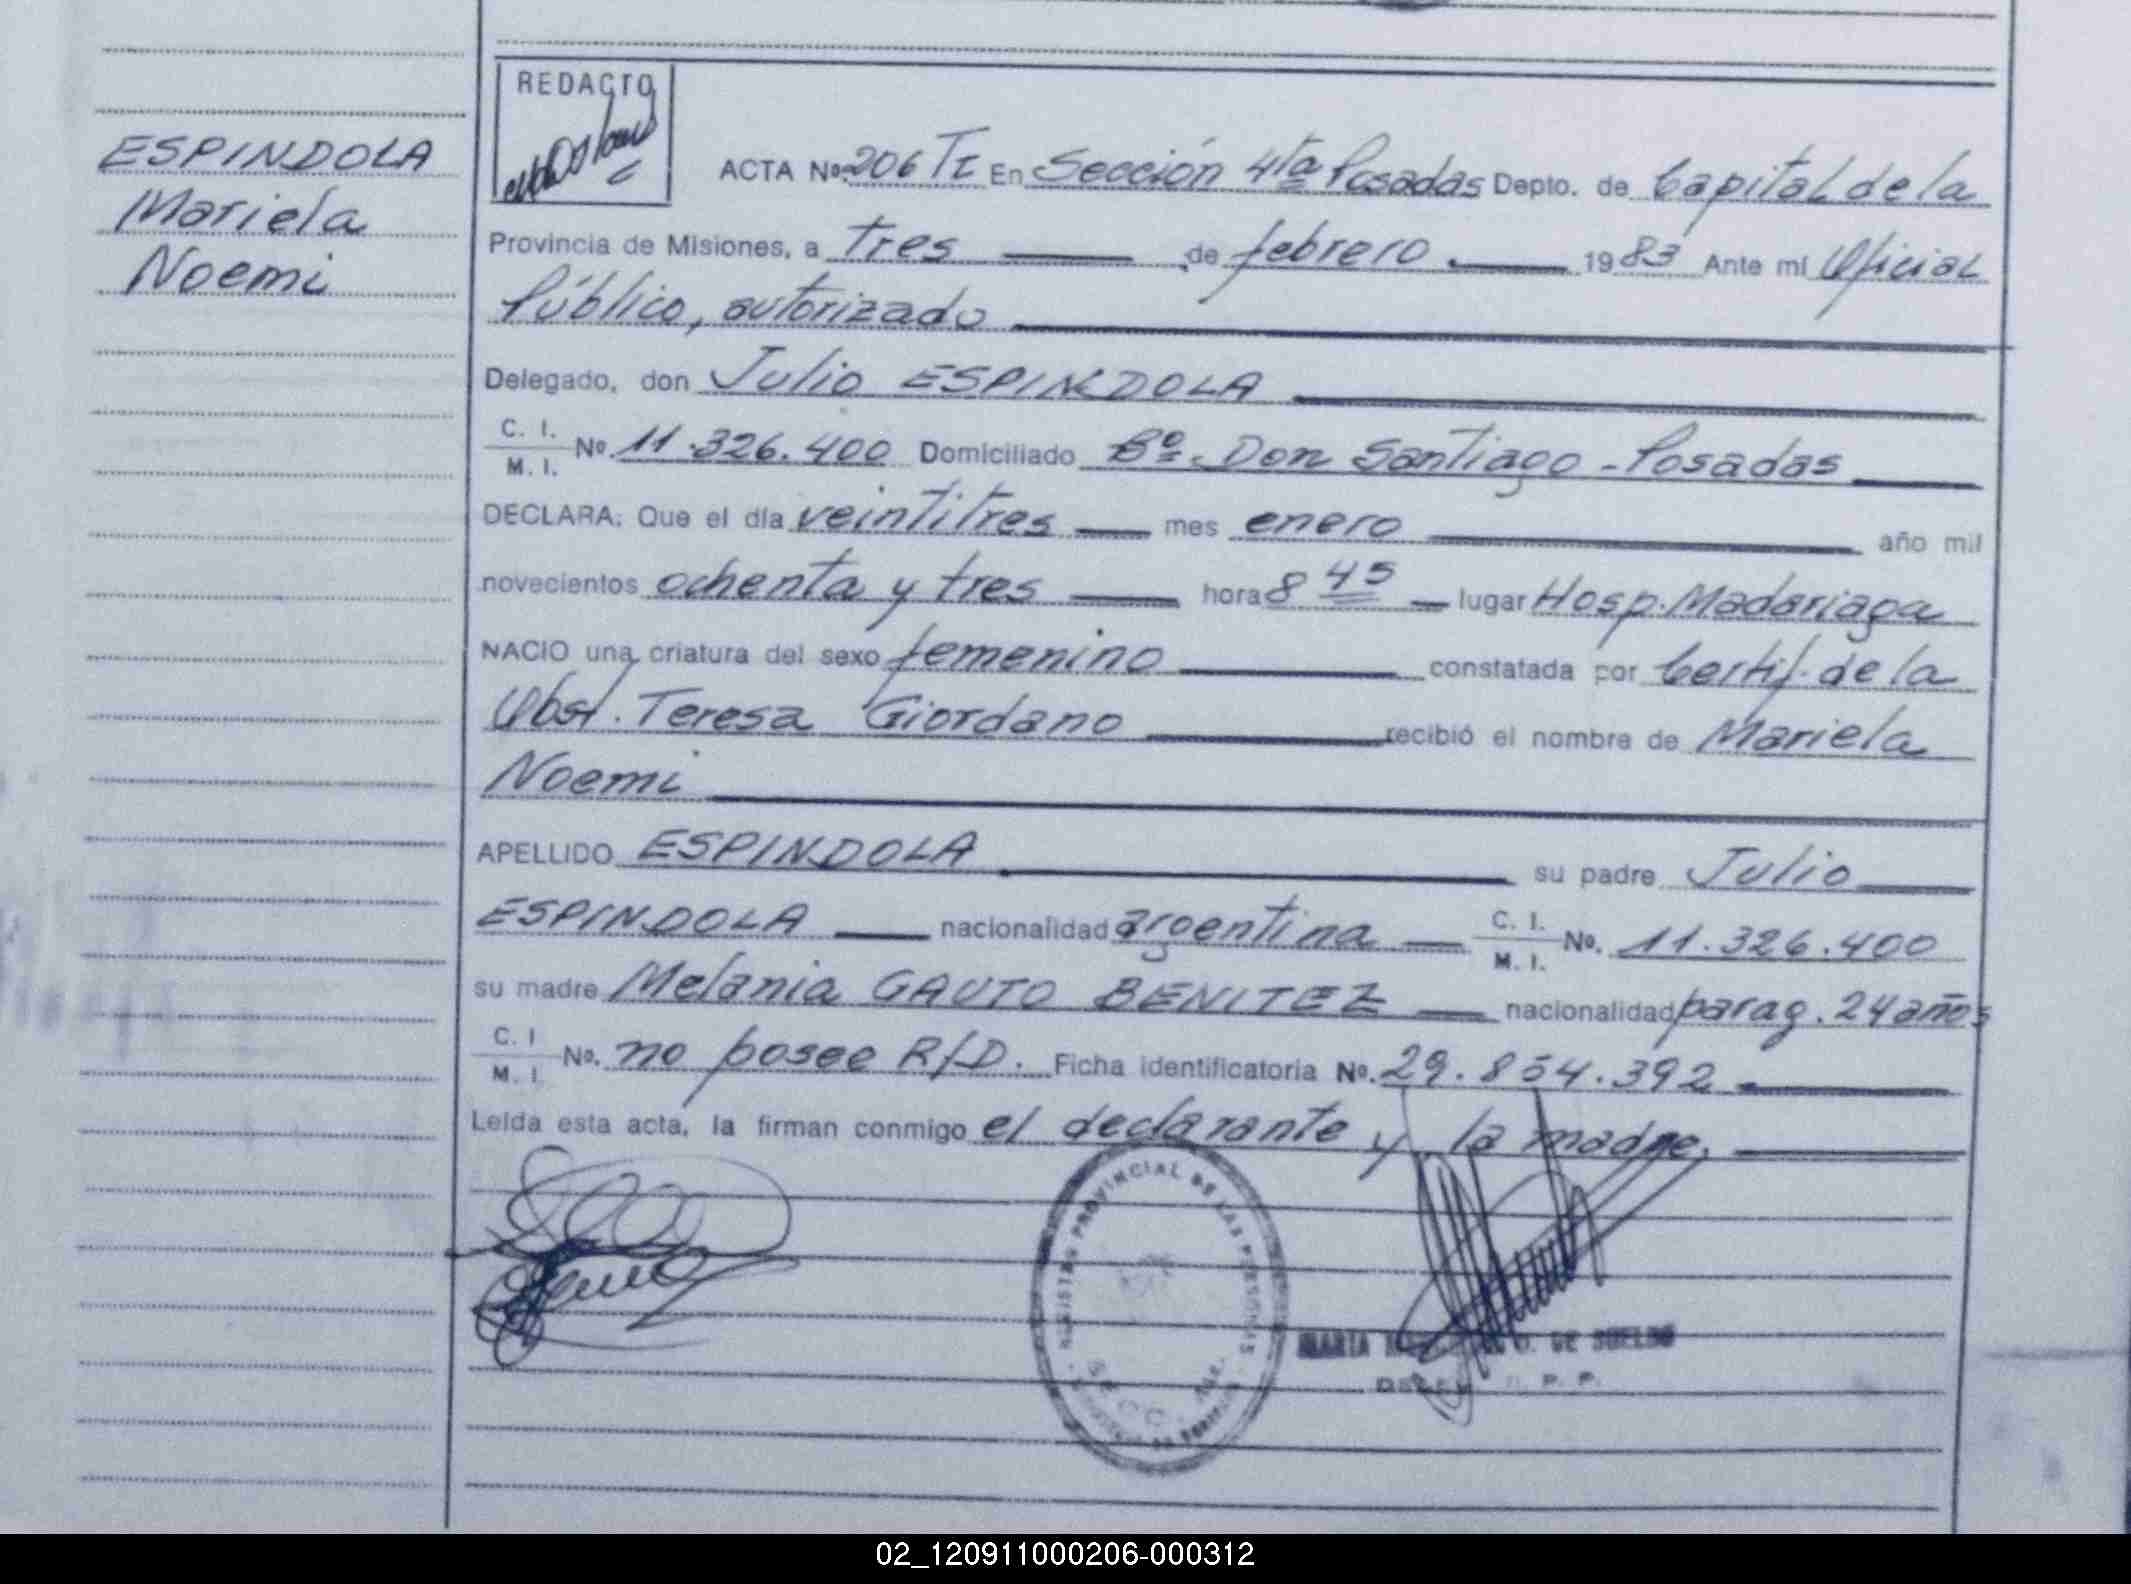 ESPINDOLA
Mariela
Noemi
REDACTO
ACTA Nº 206 TI En Sección 4ta Posadas Depto. de Capital de la
Provincia de Misiones, a tres de febrero 1983 Ante mí Oficial
Público, autorizado
Delegado, don Julio ESPINDOLA
C. I.
M. I. Nº 11.326.400 Domiciliado Bº. Don Santiago - Posadas
DECLARA: Que el día veintitres mes enero año mil
novecientos ochenta y tres hora 8 45 lugar Hosp. Madariaga
NACIO una criatura del sexo femenino constatada por Certif. de la
Obst. Teresa Giordano recibió el nombre de Mariela
Noemi
APELLIDO ESPINDOLA su padre Julio
ESPINDOLA nacionalidad argentina C. I. M. I. Nº. 11.326.400
su madre Melania GAUTO BENITEZ nacionalidad parag. 24 años
C. I. M. I. Nº. no posee R/D. Ficha identificatoria Nº. 29.854.392
Leída esta acta, la firman conmigo el declarante y la madre.
REGISTRO PROVINCIAL DE LAS PERSONAS
SECC.
MARIA D. DE SUELDO
02_120911000206-000312